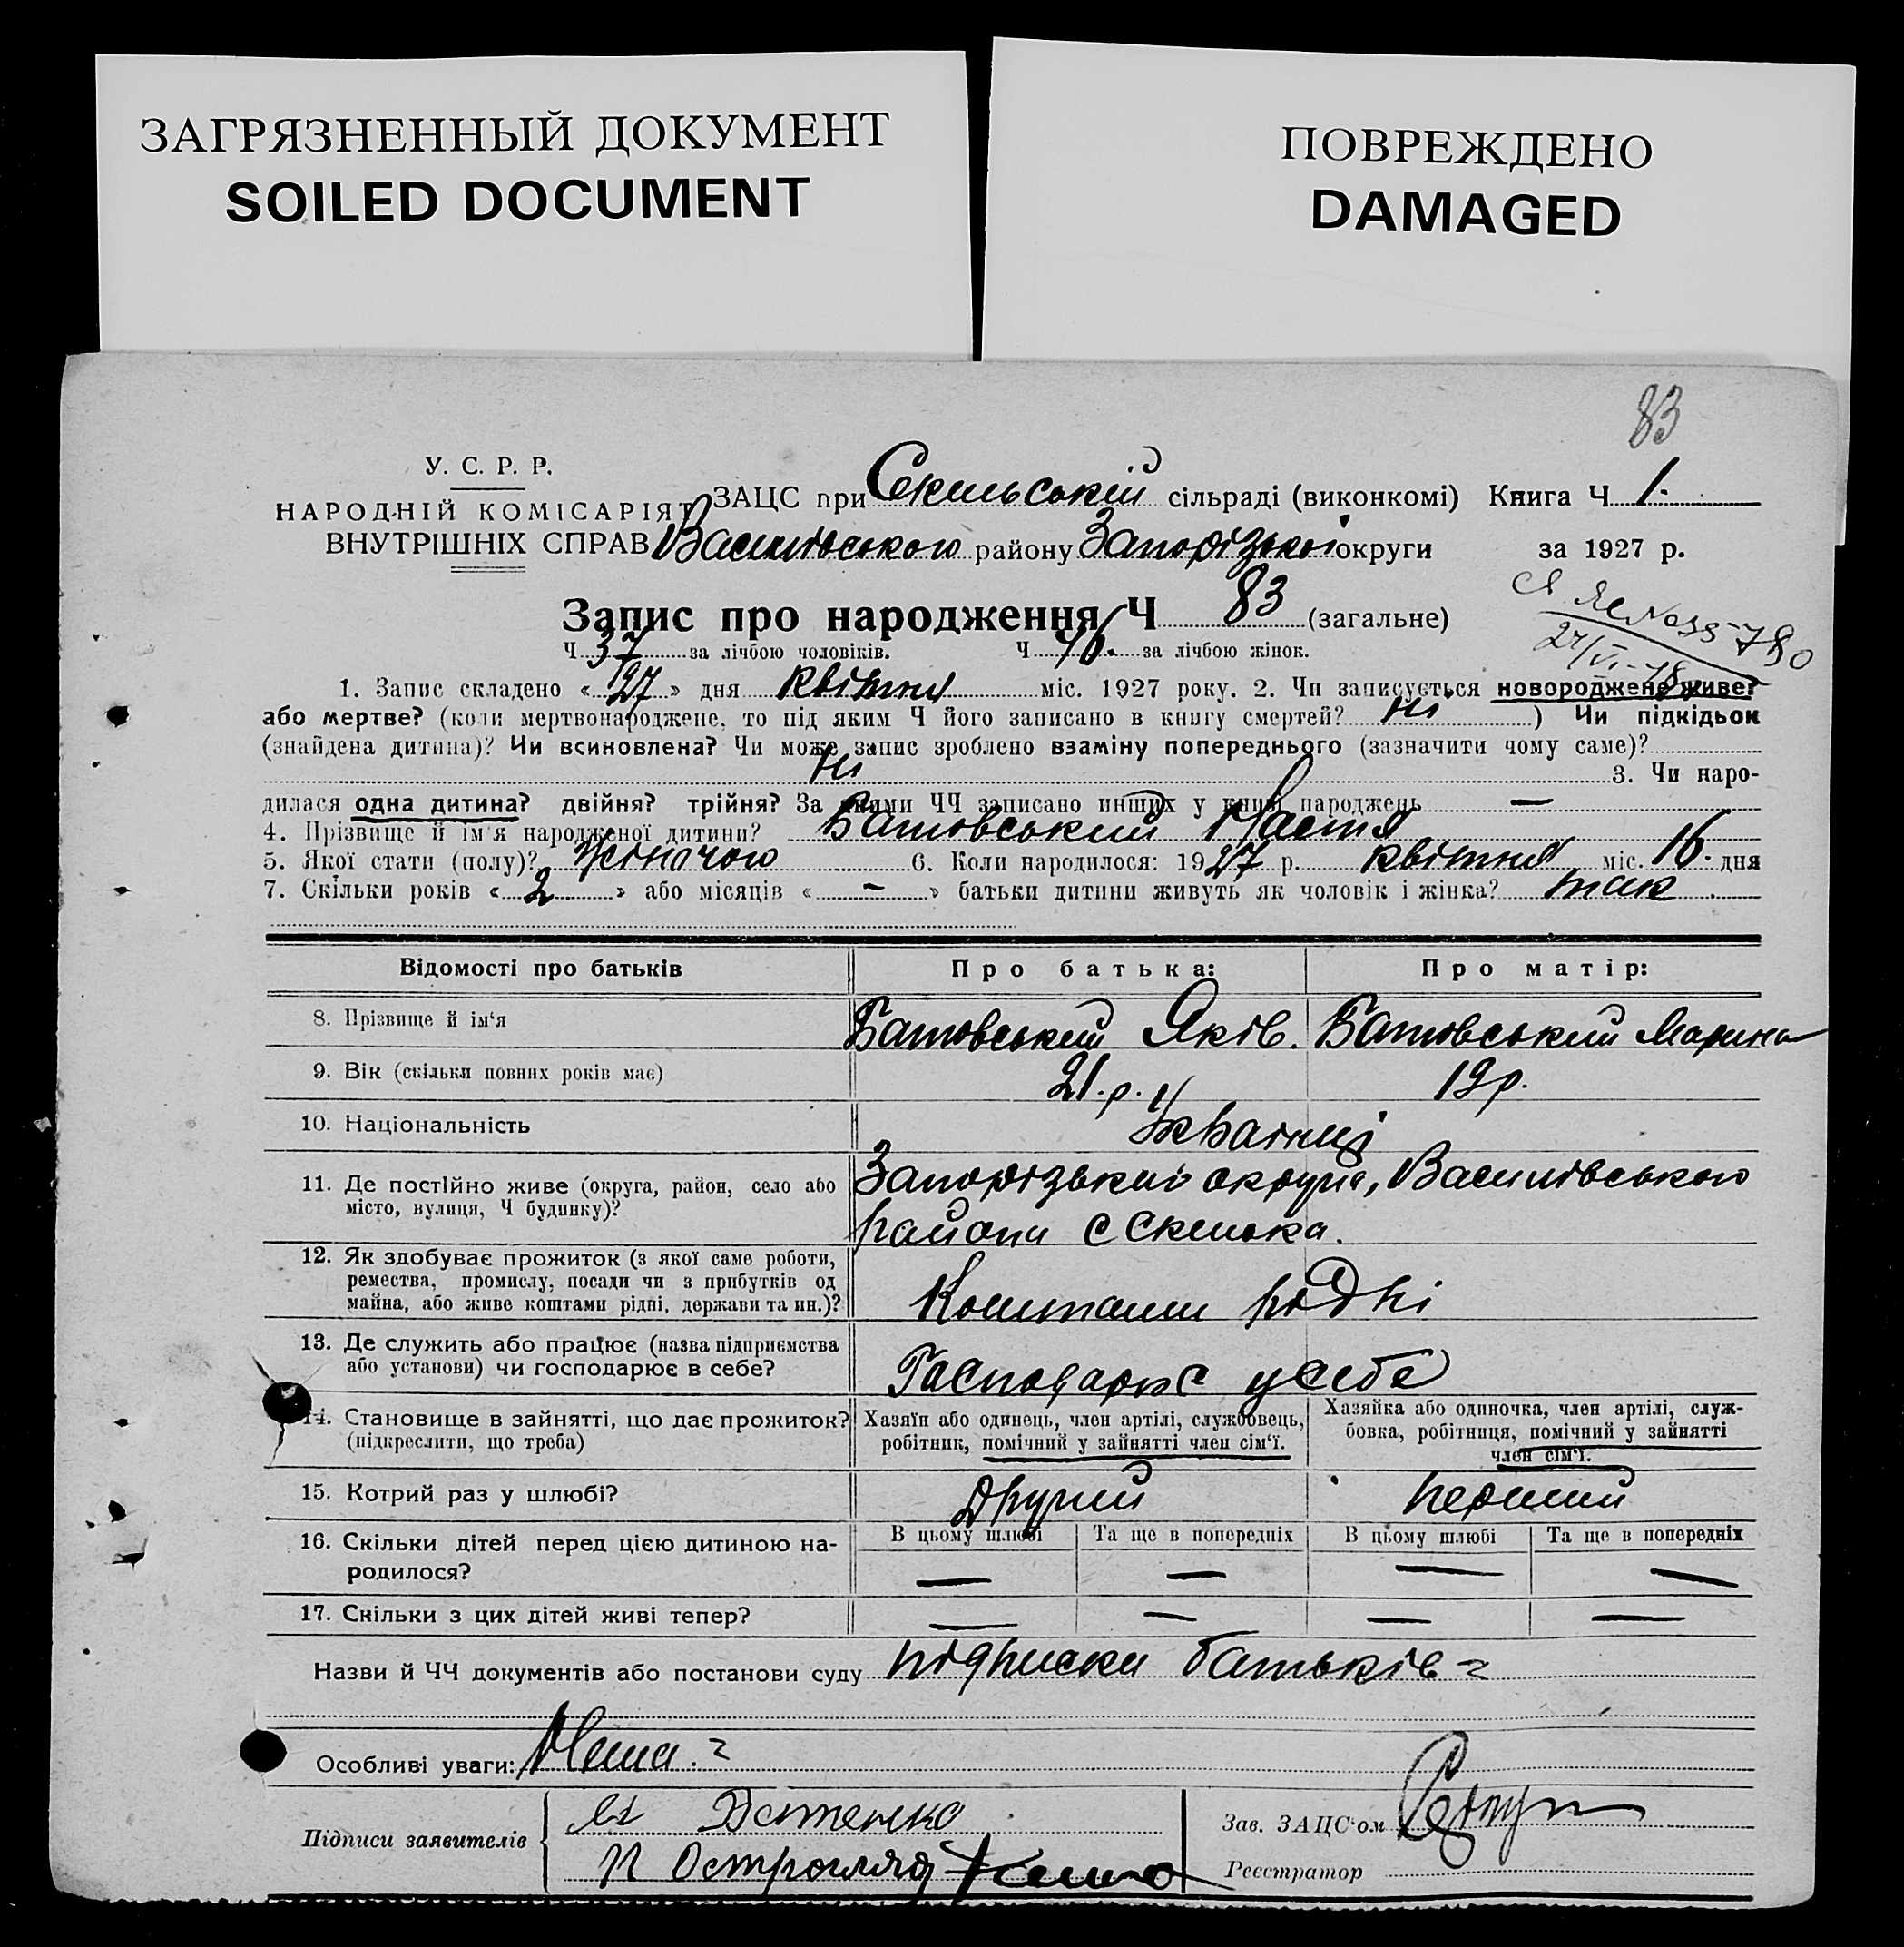 ЗАГРЯЗНЕННЫЙ ДОКУМЕНТ
SOILED DOCUMENT
ПОВРЕЖДЕНО
DAMAGED
83
У. С. Р. Р.
НАРОДНІЙ КОМІСАРІЯТ
ВНУТРІШНІХ СПРАВ
ЗАЦС при Скельській сільраді (виконкомі) Книга Ч 1.
Василівського району Запорізької округи за 1927 р.
Запис про народження Ч 83 (загальне)
Ч 37 за лічбою чоловіків. Ч 46. за лічбою жінок.
24/VI-78
1. Запис складено «27» дня квітня міс. 1927 року. 2. Чи записується новороджене живе?
або мертве? (коли мертвонароджене, то під яким Ч його записано в книгу смертей? ні) Чи підкідьок
(знайдена дитина)? Чи всиновлена? Чи може запис зроблено взаміну попереднього (зазначити чому саме)?
ні 3. Чи наро-
дилася одна дитина? двійня? трійня? За якими ЧЧ записано инших у книзі народжень —
4. Прізвище й ім'я народженої дитини? Батовський Настя
5. Якої стати (полу)? Жіночою 6. Коли народилося: 1927 р. квітня міс. 16. дня
7. Скільки років «2» або місяців «-» батьки дитини живуть як чоловік і жінка? так
Відомості про батьків Про батька: Про матір:
8. Прізвище й ім'я Батовський Яків. Батовський Марина
9. Вік (скільки повних років має) 21.р. 19р.
10. Національність Українці
11. Де постійно живе (округа, район, село або місто, вулиця, Ч будинку)?
Запорізький округи, Василівського
района с Скелька.
12. Як здобуває прожиток (з якої саме роботи,
ремества, промислу, посади чи з прибутків од
майна, або живе коштами рідні, держави та ин.)?
Коштами рідні
13. Де служить або працює (назва підприємства
або установи) чи господарює в себе?
Господарює у себе
14. Становище в зайнятті, що дає прожиток?
(підкреслити, що треба)
Хазяїн або одинець, член артілі, службовець,
робітник, помічний у зайнятті член сім'ї.
Хазяйка або одиночка, член артілі, служ-
бовка, робітниця, помічний у зайнятті
член сім'ї.
15. Котрий раз у шлюбі? Другий перший
16. Скільки дітей перед цією дитиною на-
родилося?
В цьому шлюбі Та ще в попередніх В цьому шлюбі Та ще в попередніх
— — — —
17. Скільки з цих дітей живі тепер? — — — —
Назви й ЧЧ документів або постанови суду підписки батьків
Особливі уваги: Нема.
Підписи заявителів
Зав. ЗАЦС'ом
Реєстратор